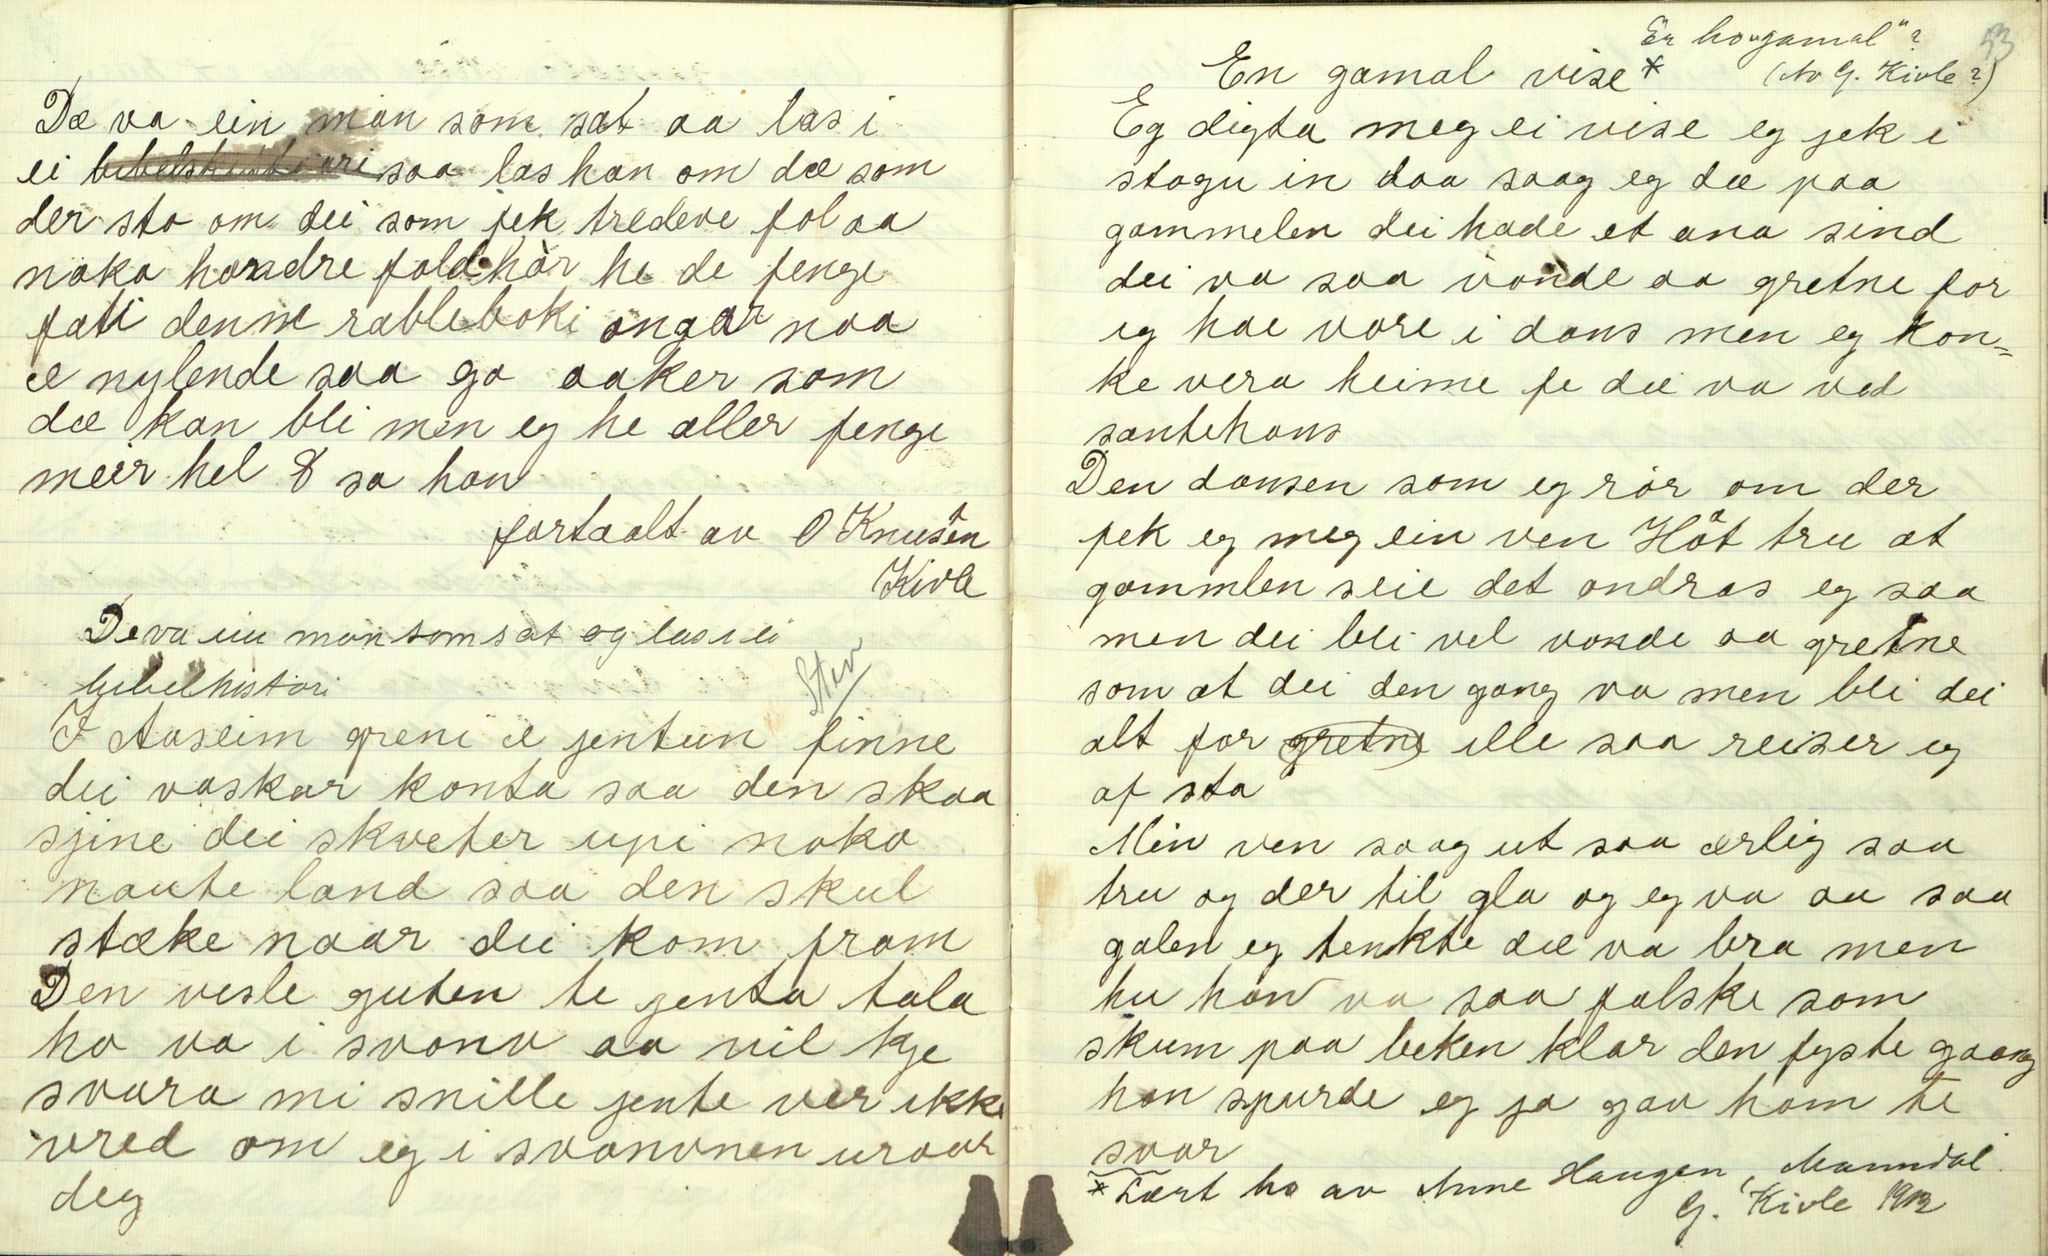 Dæ va ein man som sat aa las i
ei bibelskistoari saa las han om dæ som
der sto om dei som fek tredeve fol aa
noko hondre fold hòr he de fenge
fati denne rableboki ongar naa
æ nylende saa go aaker som
dæ kan bli men eg he aller fenge
meir hel 8 sa han
fortaalt av O Knusen
Kivle
De va ein man som sat og las i ei
bibelhistori
Stev
I Aaseim greni æ jentun finne
dei vaskar konta saa den skaa
sjine dei skveter upi noko
naute land saa den skul
stæke naar dei kom fram
Den vesle guten te jenta tala
ho va i svovnv aa vil kje
svara mi snille jente ver ikke
vred om eg i svovnen uroar
deg
53
Er ho "gamal"?
En gamal vise * (Av G. Kivle?)
Eg digta meg ei vise eg jek i
stogu in daa saag eg dæ paa
gammelen dei hade et ana sind
dei va saa vonde aa gretne for
eg hae vore i dans men eg kon=
ke vera heime fe dæ va ved
santehans
Den dansen som eg rór om der
fek eg meg ein ven Höt tru at
gammlen seie det ondras eg saa
men dei bli vel vonde aa gretne
som at dei den gang va men bli dei
alt for gretne ille saa reiser eg
af sta
Min ven saag ut saa ærlig saa
tru og der til gla og eg va aa saa
galen eg tenkte dæ va bra men
hu han va saa falske som
skum paa beken klar den fyste gaang
han spurde eg ja gav ham te
svar
* Lært ho av Anne Haugen, Manndal.
G. Kivle 1913